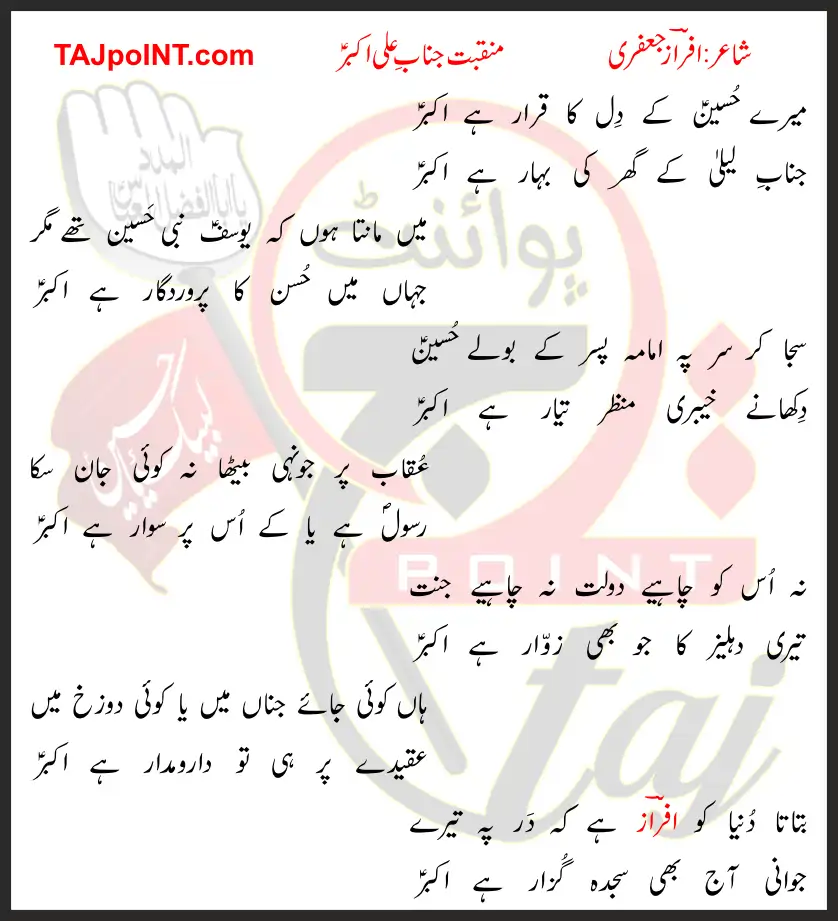 شاعر: افرازؔ جعفری منقبت جنابِ علی اکبرؑ TAJpoiNT.com
میرے حُسینؑ کے دِل کا قرار ہے اکبرؑ
جنابِ لیلیٰ کے گھر کی بہار ہے اکبرؑ
میں مانتا ہوں کہ یوسفؑ نبی حَسین تھے مگر
جہاں میں حُسن کا پروردگار ہے اکبرؑ
سجا کر سر پہ امامہ پسر کے بولے حُسینؑ
دِکھانے خیبری منظر تیار ہے اکبرؑ
عُقاب پر جونہی بیٹھا نہ کوئی جان سکا
رسولؐ ہے یا کے اُس پر سوار ہے اکبرؑ
نہ اُس کو چاہیے دولت نہ چاہیے جنت
تیری دہلیز کا جو بھی زوّار ہے اکبرؑ
ہاں کوئی جائے جناں میں یا کوئی دوزخ میں
عقیدے پر ہی تو دارومدار ہے اکبرؑ
بتاتا دُنیا کو افرازؔ ہے کہ دَر پہ تیرے
جوانی آج بھی سجدہ گُزار ہے اکبرؑ
پوائنٹ
تاج
POINT
taj
لبیک یا حسین